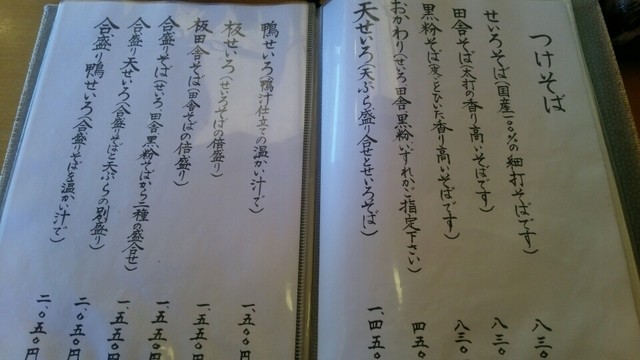 つけそば
せいろそば(国産一〇〇%の細打そばです) 八三〇
田舎そば(太打の香り高いそばです) 八三〇
黒粉そば(皮ごとひいた香り高いそばです) 八三〇
おかわり(せいろ田舎黒粉いずれかご指定下さい) 四五〇
天せいろ(天ぷら盛り合せとせいろそば) 一、四五〇
鴨せいろ(鴨汁仕立ての温かい汁で) 一、五五〇
板せいろ(せいろそばの倍盛り) 一、五五〇
板田舎そば(田舎そばの倍盛り) 一、五五〇円
合盛りそば(せいろ田舎黒粉そばから二種の盛合せ) 一、五五〇円
合盛り天せいろ(合盛りそばと天ぷらの別盛り) 二、〇五〇円
合盛り鴨せいろ(合盛りそばを温かい汁で) 二、〇五〇円